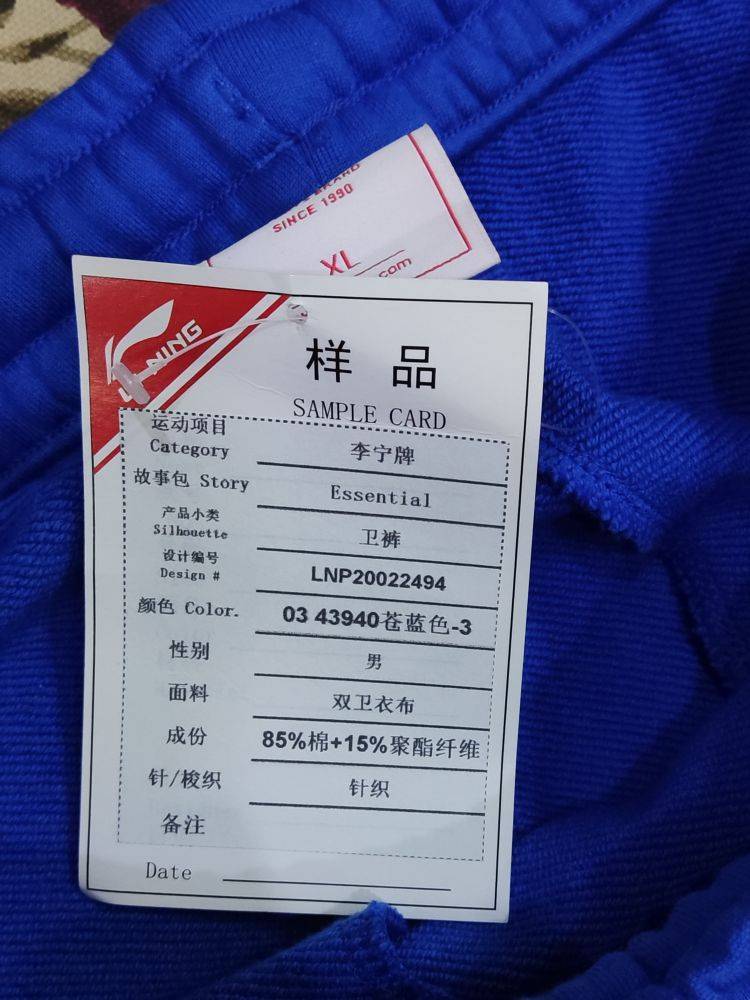 SINCE 1990
XL
.com
NING
样 品
SAMPLE CARD
运动项目
Category 李宁牌
故事包 Story Essential
产品小类
Silhouette 卫裤
设计编号
Design # LNP20022494
颜色 Color. 03 43940苍蓝色-3
性别 男
面料 双卫衣布
成份 85%棉+15%聚酯纤维
针/梭织 针织
备注
Date